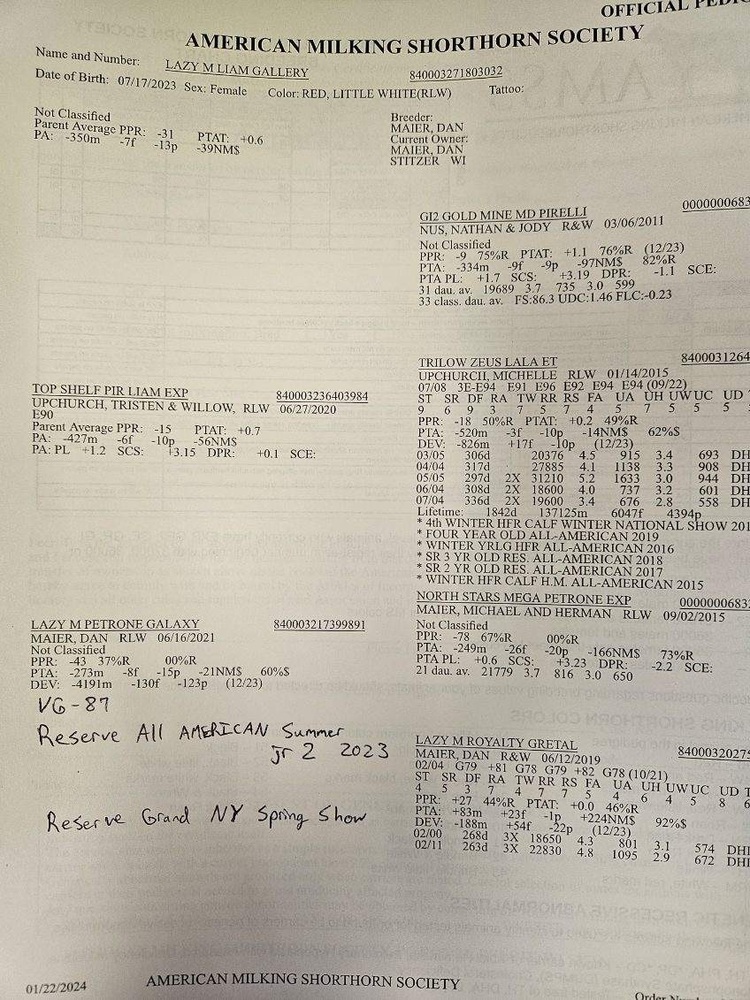 OFFICIAL
AMERICAN MILKING SHORTHORN SOCIETY
Name and Number: LAZY M LIAM GALLERY 840003271803032
Date of Birth: 07/17/2023 Sex: Female Color: RED, LITTLE WHITE(RLW) Tattoo:
Not Classified
Parent Average PPR: -31 PTAT: +0.6
PA: -350m -7f -13p -39NM$
Breeder:
MAIER, DAN
Current Owner:
MAIER, DAN
STITZER WI
GI2 GOLD MINE MD PIRELLI 0000000683
NUS, NATHAN & JODY R&W 03/06/2011
Not Classified
PPR: -9 75%R PTAT: +1.1 76%R (12/23)
PTA: -334m -9f -9p -97NM$ 82%R
PTA PL: +1.7 SCS: +3.19 DPR: -1.1 SCE:
31 dau. av. 19689 3.7 735 3.0 599
33 class. dau. av. FS:86.3 UDC:1.46 FLC:-0.23
TOP SHELF PIR LIAM EXP 840003236403984
UPCHURCH, TRISTEN & WILLOW, RLW 06/27/2020
E90
Parent Average PPR: -15 PTAT: +0.7
PA: -427m -6f -10p -56NM$
PA: PL +1.2 SCS: +3.15 DPR: +0.1 SCE:
TRILOW ZEUS LALA ET 8400031264
UPCHURCH, MICHELLE RLW 01/14/2015
07/08 3E-E94 E91 E96 E92 E94 E94 (09/22)
ST SR DF RA TW RR RS FA UA UH UW UC UD T
9 6 9 3 7 5 7 4 5 7 5 5 5
PPR: -18 50%R PTAT: +0.2 49%R
PTA: -520m -3f -10p -14NM$ 62%$
DEV: -826m +17f -10p (12/23)
03/05 306d 20376 4.5 915 3.4 693 DH
04/04 317d 27885 4.1 1138 3.3 908 DH
05/05 297d 2X 31210 5.2 1633 3.0 944 DH
06/04 308d 2X 18600 4.0 737 3.2 601 DH
07/04 336d 2X 19600 3.4 676 2.8 558 DH
Lifetime: 1842d 137125m 6047f 4394p
* 4th WINTER HFR CALF WINTER NATIONAL SHOW 201
* FOUR YEAR OLD ALL-AMERICAN 2019
* WINTER YRLG HFR ALL-AMERICAN 2016
* SR 3 YR OLD RES. ALL-AMERICAN 2018
* SR 2 YR OLD RES. ALL-AMERICAN 2017
* WINTER HFR CALF H.M. ALL-AMERICAN 2015
NORTH STARS MEGA PETRONE EXP 000000068
MAIER, MICHAEL AND HERMAN RLW 09/02/2015
Not Classified
PPR: -78 67%R 00%R
PTA: -249m -26f -20p -166NM$ 73%R
PTA PL: +0.6 SCS: +3.23 DPR: -2.2 SCE:
21 dau. av. 21779 3.7 816 3.0 650
LAZY M PETRONE GALAXY 840003217399891
MAIER, DAN RLW 06/16/2021
Not Classified
PPR: -43 37%R 00%R
PTA: -273m -8f -15p -21NM$ 60%$
DEV: -4191m -130f -123p (12/23)
VG-87
Reserve All AMERICAN Summer
Jr 2 2023
Reserve Grand NY Spring Show
LAZY M ROYALTY GRETAL 84000320275
MAIER, DAN R&W 06/12/2019
02/04 G79 +81 G78 G79 +82 G78 (10/21)
ST SR DF RA TW RR RS FA UA UH UW UC UD T
4 5 3 7 4 7 5 4 6 4 5 8 6
PPR: +27 44%R PTAT: +0.0 46%R
PTA: +83m +23f -1p +224NM$ 92%$
DEV: -188m +54f -22p (12/23)
02/00 268d 3X 18650 4.3 801 3.1 574 DHI
02/11 263d 3X 22830 4.8 1095 2.9 672 DHI
01/22/2024 AMERICAN MILKING SHORTHORN SOCIETY